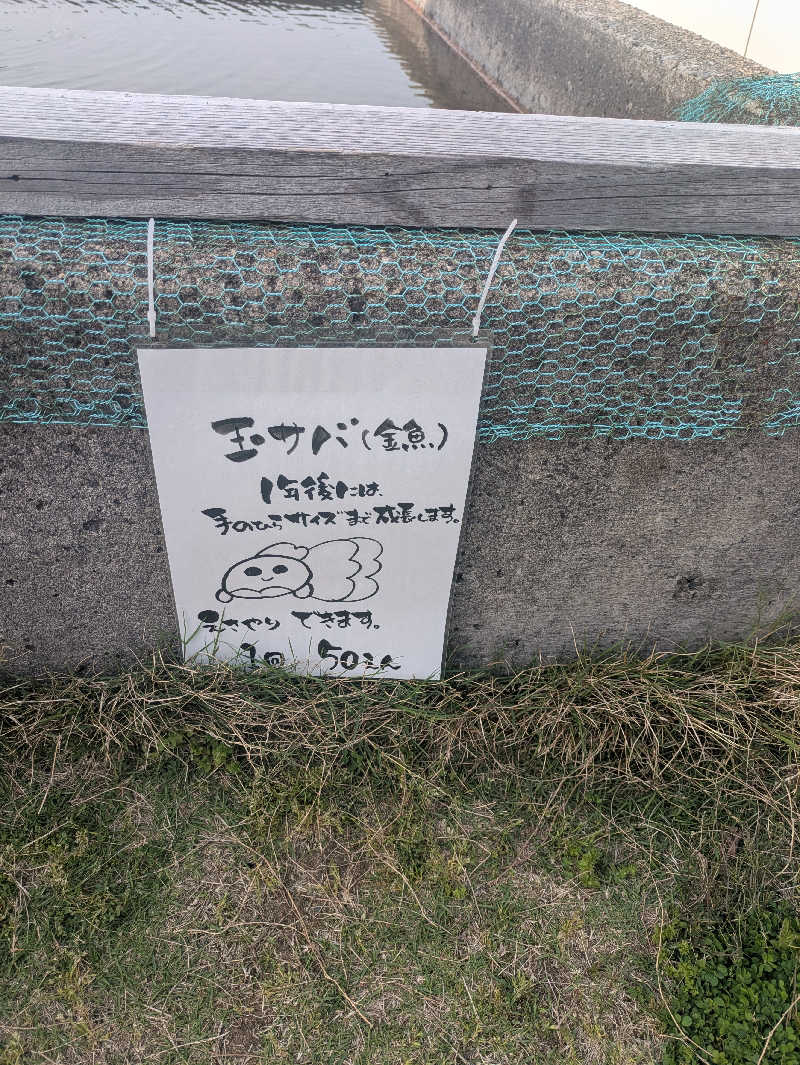 玉サバ(金魚)
1年後には、
手のひらサイズまで成長します。
えさやり できます。
1回 50えん